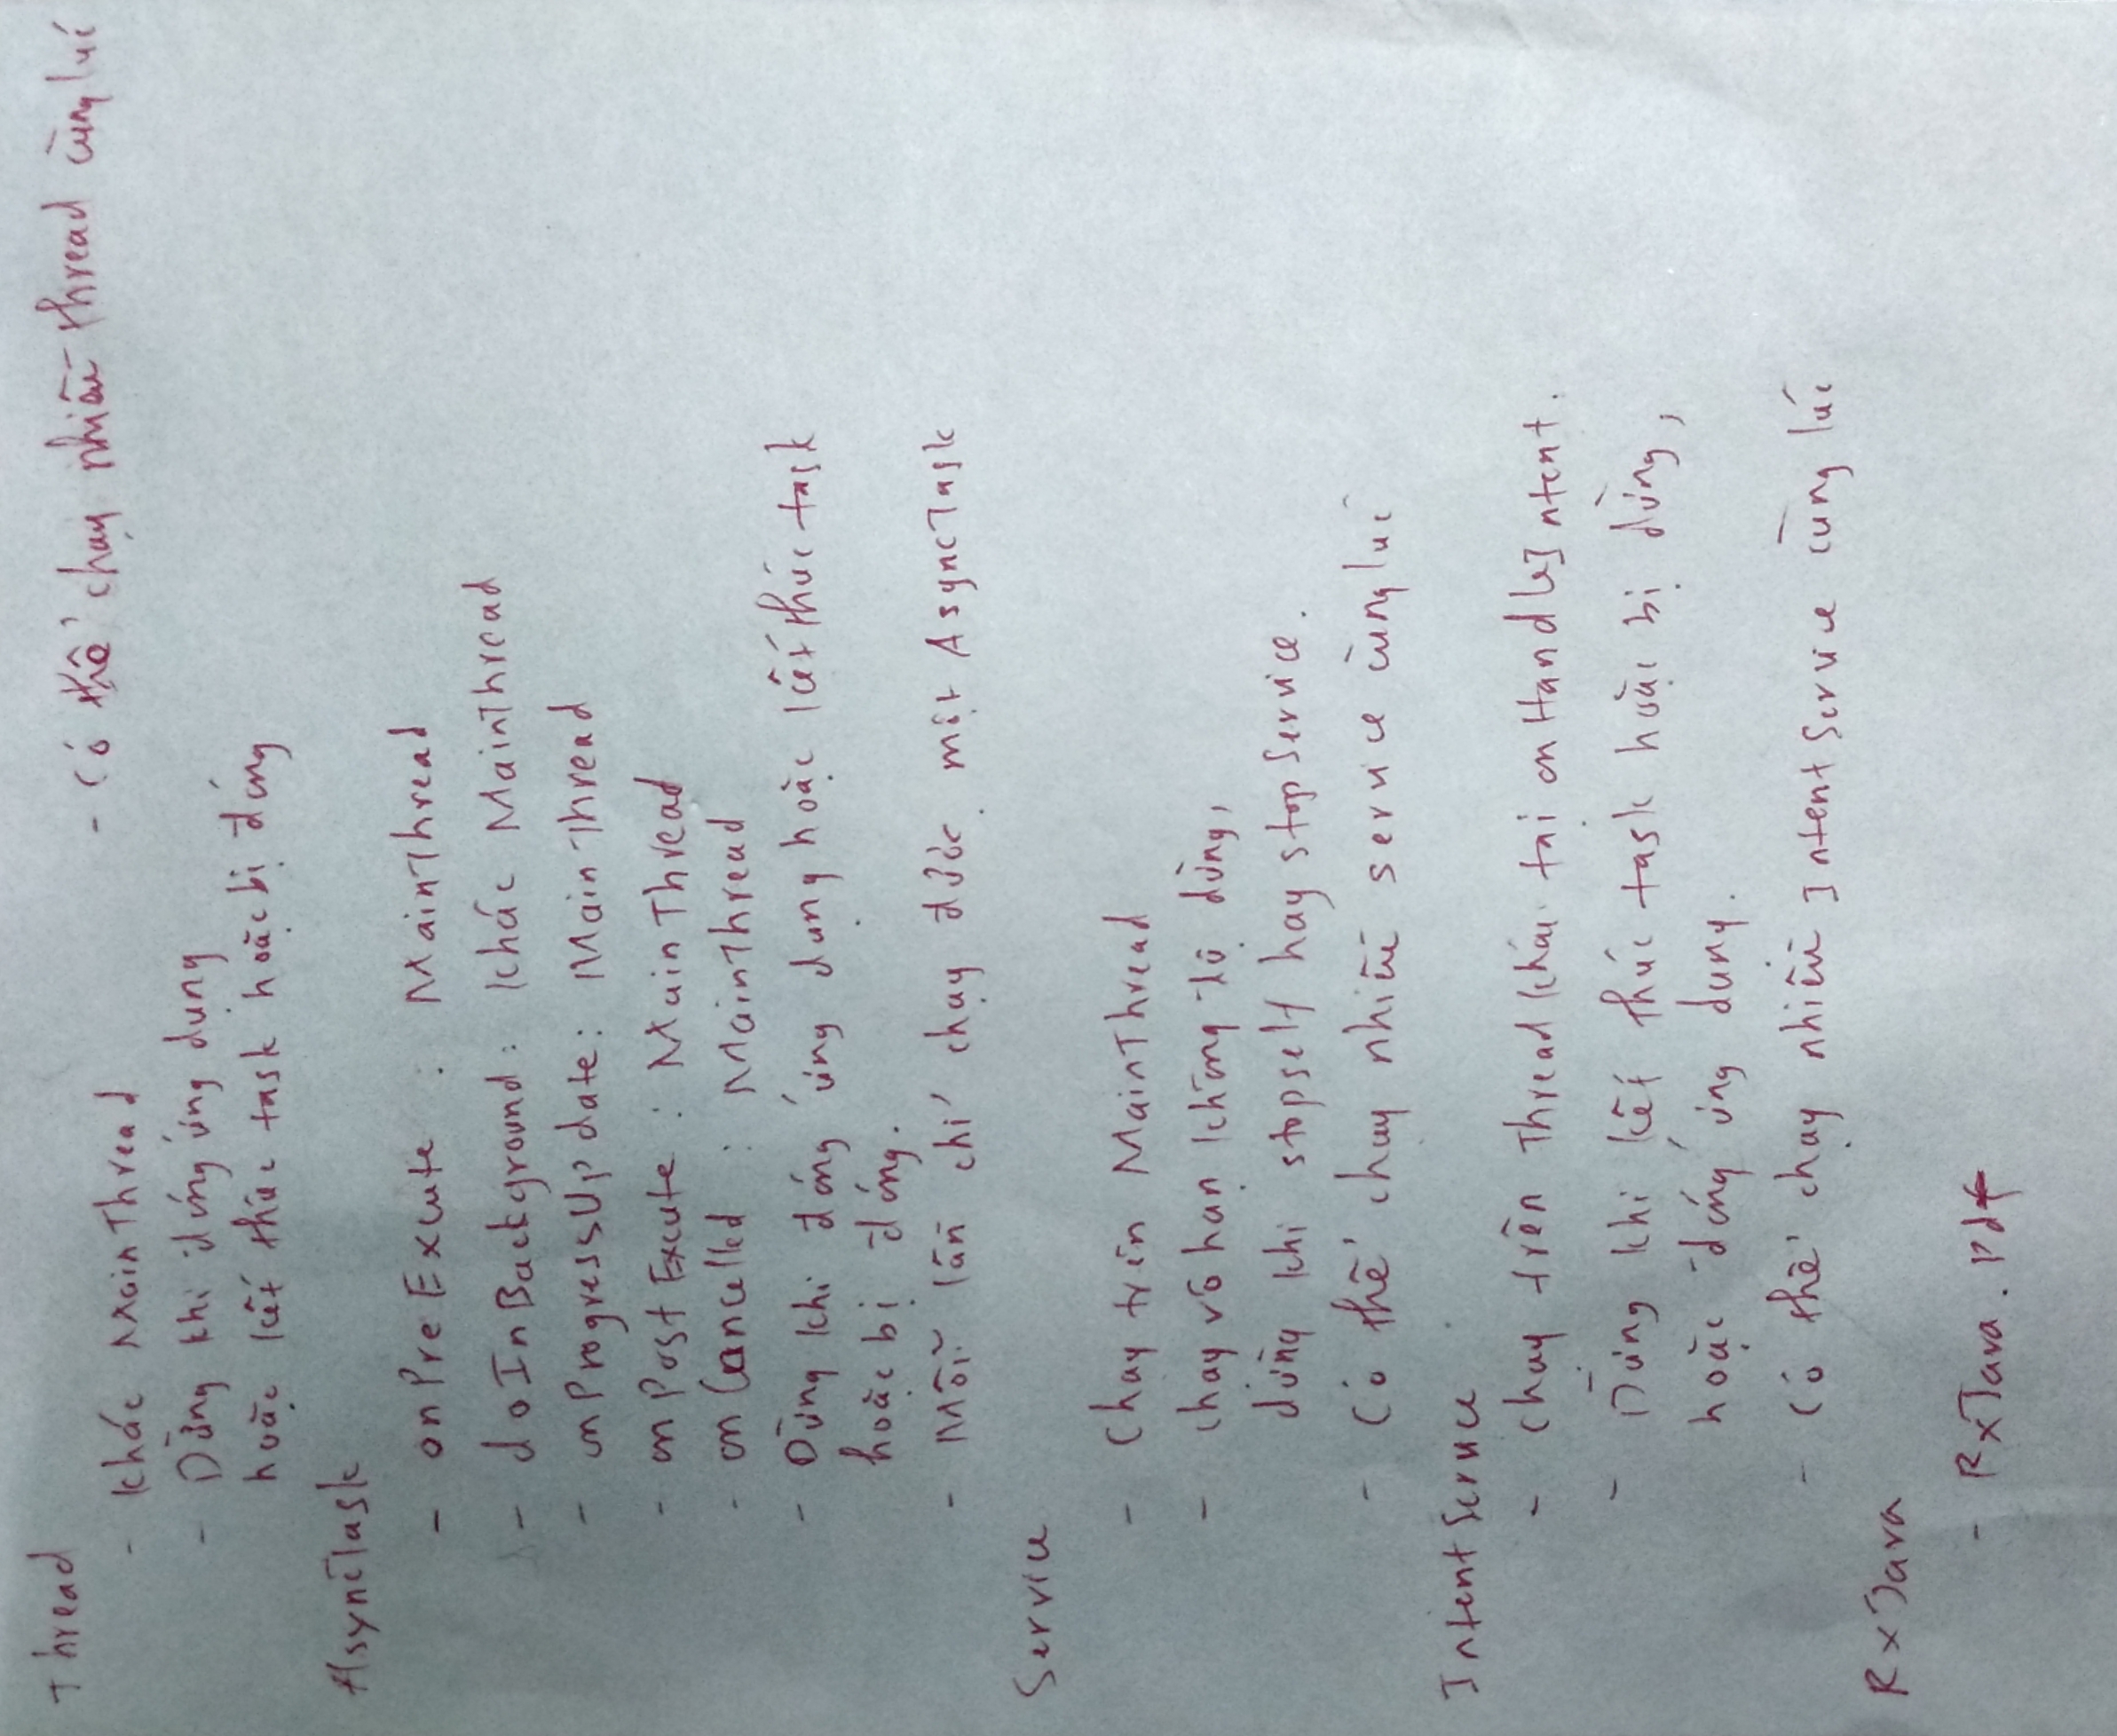 Thread
- Khác MainThread
- Có thể chạy nhiều thread cùng lúc
- Dừng khi đóng ứng dụng
hoặc kết thúc task hoặc bị đóng
AsyncTask
- onPreExcute : MainThread
- doInBackground : Khác MainThread
- onProgressUpdate : MainThread
- onPostExcute : MainThread
- onCancelled : MainThread
- Dừng khi đóng ứng dụng hoặc kết thúc task
hoặc bị đóng.
- Mỗi lần chỉ chạy được một AsyncTask
Service
- Chạy trên MainThread
- chạy vô hạn không tự dừng,
dừng khi stopself hay stopService.
- Có thể chạy nhiều service cùng lúc
IntentService
- chạy trên Thread khác tại onHandleIntent.
- Dừng khi kết thúc task hoặc bị dừng,
hoặc đóng ứng dụng.
- Có thể chạy nhiều IntentService cùng lúc
RxJava
- RxJava.pdf